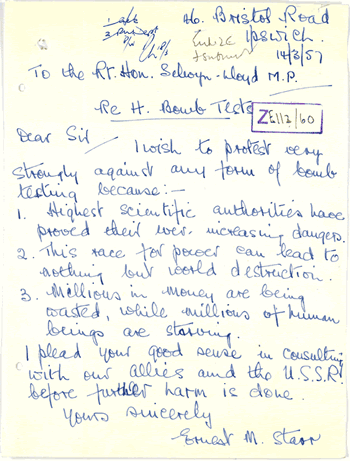 46. Bristol Road
Ipswich.
14/3/57
To the Rt. Hon. Selwyn-Lloyd M.P.
Re H. Bomb Tests
ZE112/60
Dear Sir
I wish to protest very
strongly against any form of bomb
testing because:-
1. Highest scientific authorities have
proved their ever increasing dangers.
2. This race for power can lead to
nothing but world destruction.
3. Millions in money are being
wasted, while millions of human
beings are starving.
I plead your good sense in consulting
with our allies and the U.S.S.R.
before further harm is done.
Yours sincerely
Ernest M. Starr